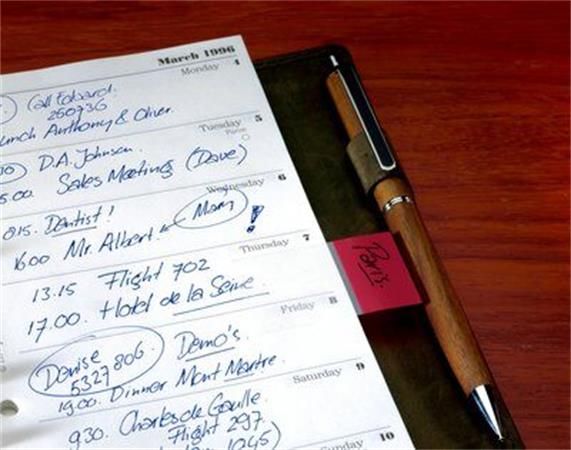 March 1996
Monday 4
Call Edward.
250736
Lunch Anthony & Oliver.
Tuesday 5
D.A. Johnson.
5.00. Sales Meeting (Dave)
Wednesday 6
815. Dentist!
Mam
1600 Mr. Albert. !
Thursday 7
13.15 Flight 702
17.00. Hotel de la Seine
Paris.
Friday 8
Denise Demo's.
5327806.
1900. Dinner Mont Martre.
Saturday 9
930. Charles de Gaulle.
Flight 297.
1245)
Sunday 10